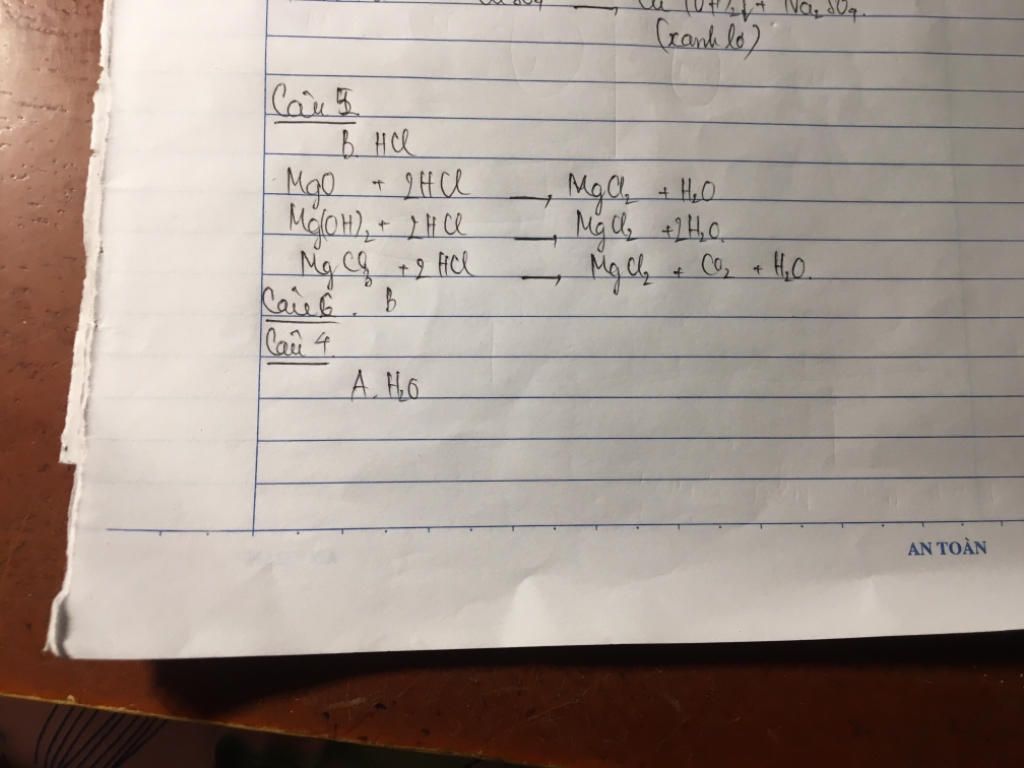 CuSO4 → Cu(OH)2↓ + Na2SO4.
(xanh lơ)
Câu 5
B. HCl
MgO + 2HCl → MgCl2 + H2O
Mg(OH)2 + 2HCl → MgCl2 + 2H2O.
MgCO3 + 2HCl → MgCl2 + CO2 + H2O.
Câu 6. B
Câu 4
A. H2O
AN TOÀN